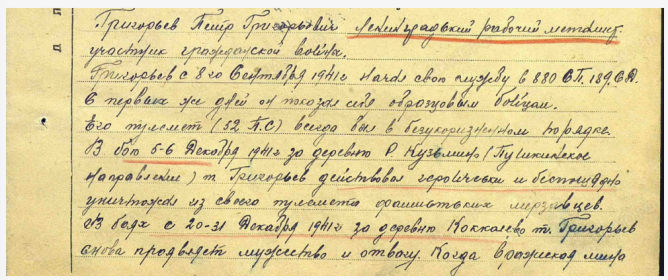 Григорьев Петр Григорьевич Ленинградский рабочий металист
участник гражданской войны.
Григорьев с 8го Сентября 1941г начал свою службу в 880 СП. 189. СД.
С первых же дней он показал себя образцовым бойцом.
Его пулемет (52 П.С) всегда был в безукоризненном порядке.
В бою 5-6 Декабря 1941г за деревню Р. Кузьмино (Пушкинское
направление) т. Григорьев действовал героически и беспощадно
уничтожал из своего пулемета фашистских мерзавцев.
В боях с 20-31 Декабря 1941г за деревню Коккалево т. Григорьев
снова продвляет мужество и отвагу. Когда вражеская мина